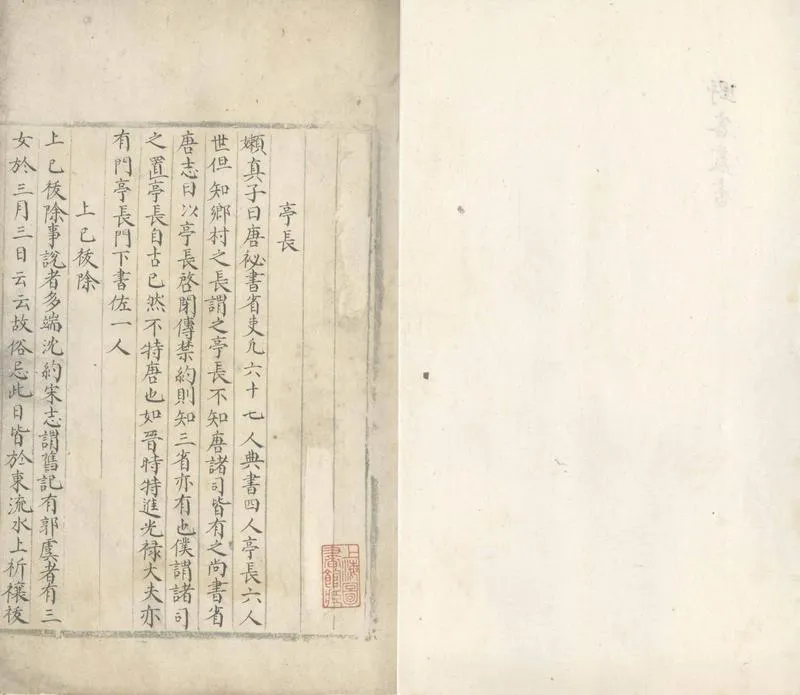 亭長
嬾真子曰唐祕書省吏凡六十七人典書四人亭長六人
世但知鄉村之長謂之亭長不知唐諸司皆有之尚書省
唐志曰以亭長啓閉傳禁約則知三省亦有也僕謂諸司
之置亭長自古已然不特唐也如晉時特進光祿大夫亦
有門亭長門下書佐一人
上巳祓除
上巳祓除事說者多端沈約宋志謂舊記有郭虞者有三
女於三月三日云云故俗忌此日皆於東流水上祈禳祓
上海圖
書館藏